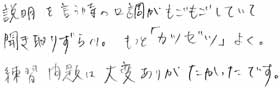 説明を言う時の口調がもごもごしていて
聞き取りずらい。もっと「カツゼツ」よく。
練習問題は大変ありがたかったです。